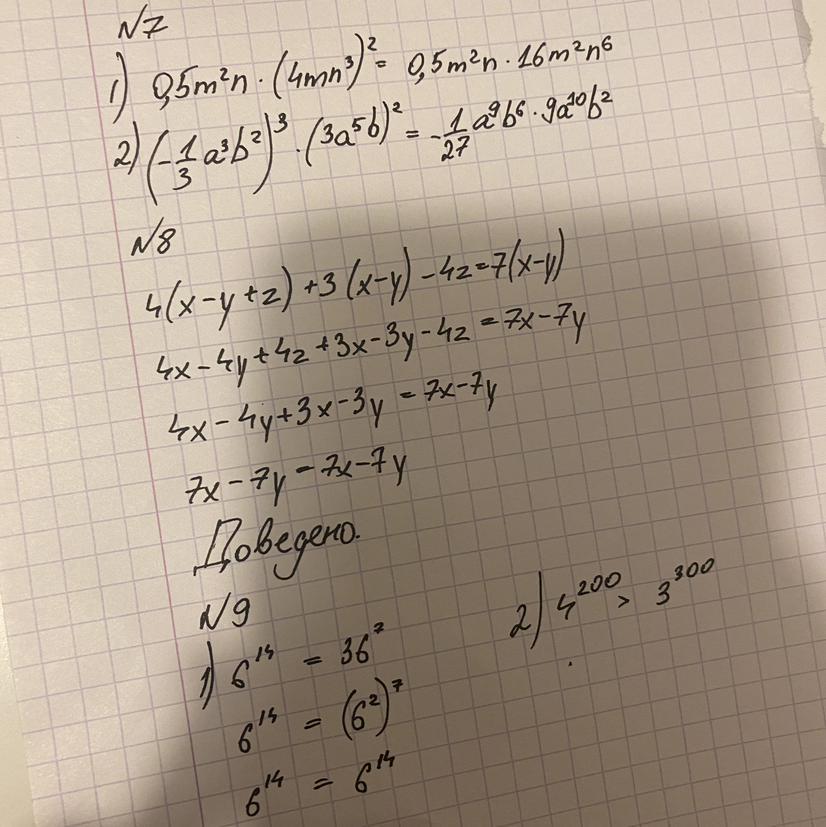 N7
1) 0,5m²n · (4mn³)² = 0,5m²n · 16m²n⁶
2) (-1/3 a³b²)³ · (3a⁵b)² = -1/27 a⁹b⁶ · 9a¹⁰b²
N8
4(x-y+z)+3(x-y)-4z=7(x-y)
4x-4y+4z+3x-3y-4z=7x-7y
4x-4y+3x-3y=7x-7y
7x-7y=7x-7y
Доведено.
N9
1) 6¹⁴ = 36⁷
6¹⁴ = (6²)⁷
6¹⁴ = 6¹⁴
2) 4²⁰⁰ > 3³⁰⁰